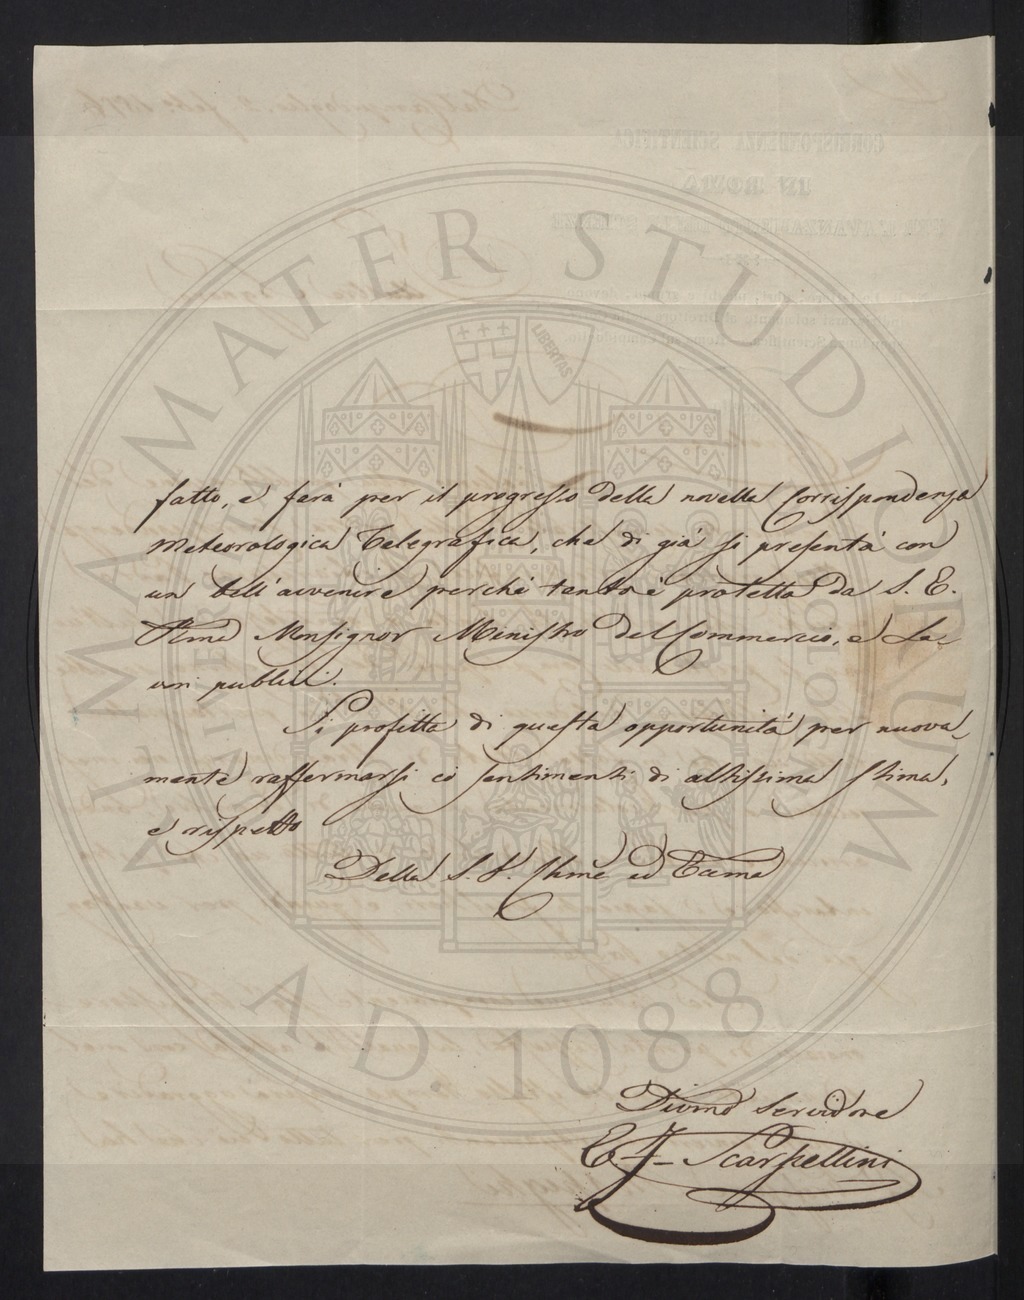 fatto, e farà per il progresso della novella Corrispondenza
Meteorologica Telegrafica, che di già si presenta con
un bell'avvenire perchè tanto è protetta da S. E.
Rma Monsignor Ministro del Commercio, e La-
vori publici.
Si profitta di questa opportunità per nuova-
mente raffermarsi coi sentimenti di altissima stima,
e rispetto
Della S. V. Illma ed Eccma
Divmo Servidore
E. F. Scarpellini
ALMA MATER STUDIORUM
LIBERTAS
A.D. 1088
CORRISPONDENZA SCIENTIFICA
IN ROMA